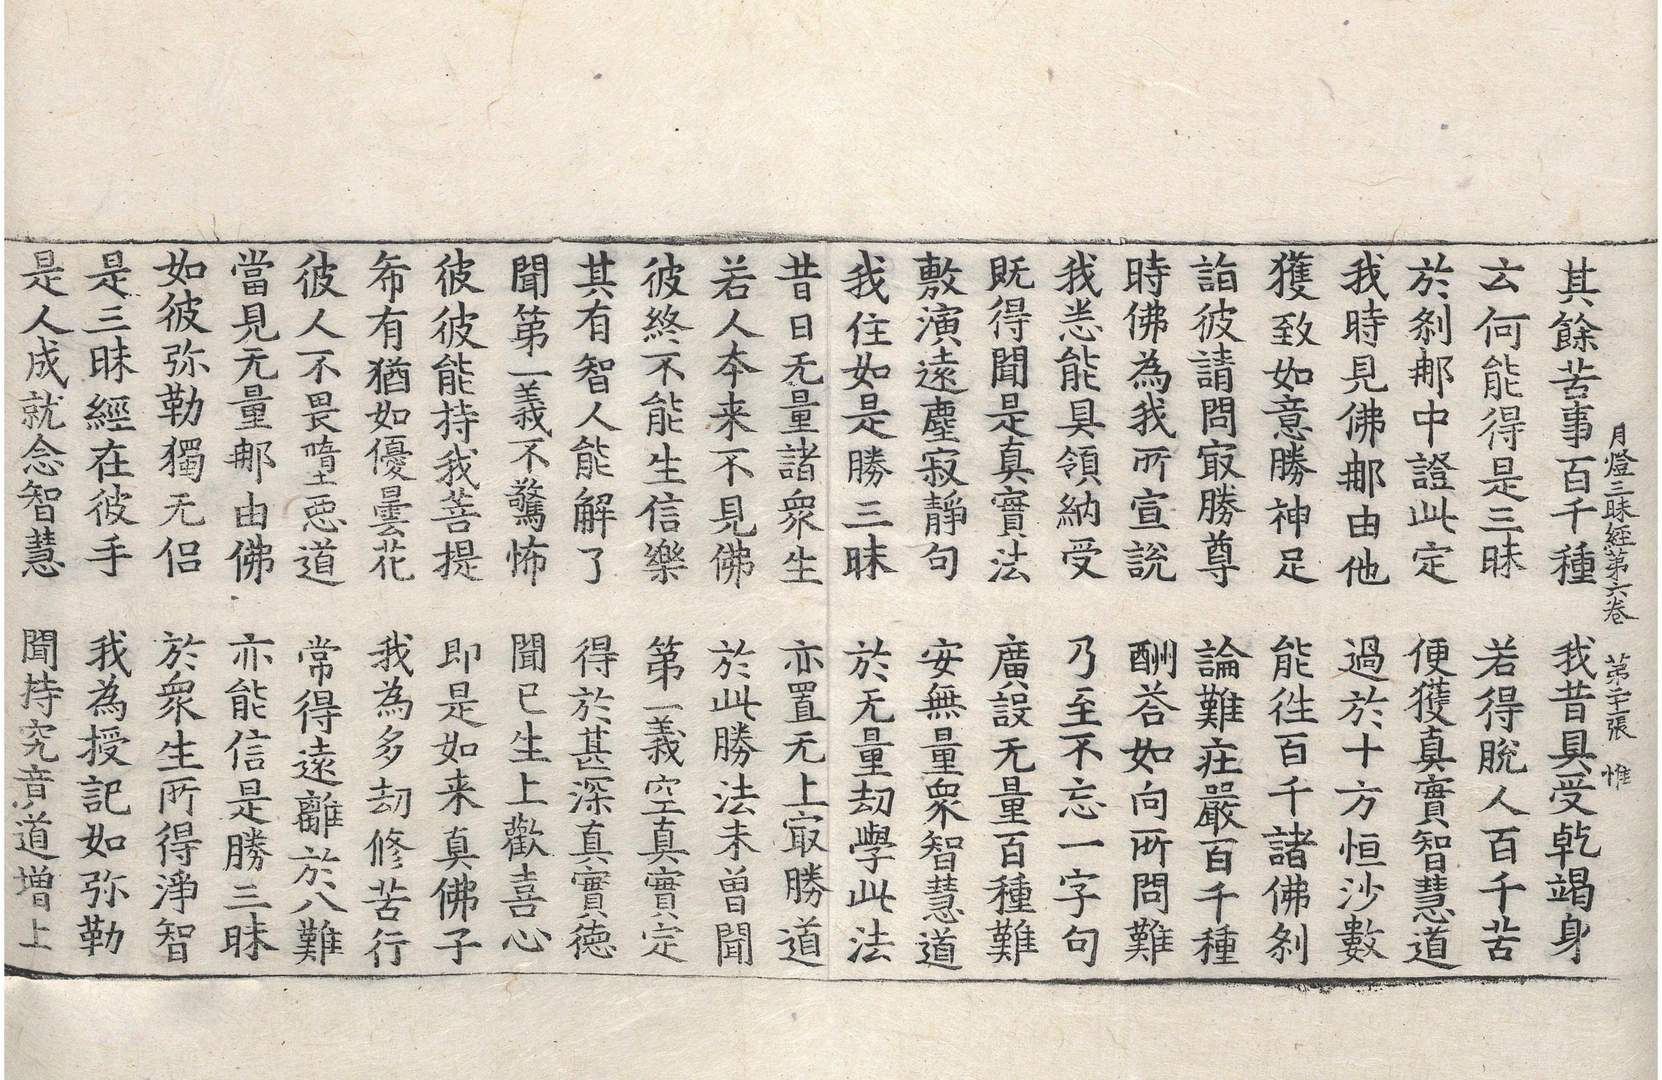 月燈三昧經第六卷 第二十張 惟
其餘苦事百千種 我昔具受乾竭身
云何能得是三昧 若得脫人百千苦
於剎那中證此定 便獲真實智慧道
我時見佛那由他 過於十方恒沙數
獲致如意勝神足 能徃百千諸佛剎
詣彼請問㝡勝尊 論難莊嚴百千種
時佛為我所宣說 酬荅如向所問難
我悉能具領納受 乃至不忘一字句
既得聞是真實法 廣設无量百種難
敷演遠塵寂靜句 安無量衆智慧道
我住如是勝三昧 於无量劫學此法
昔日无量諸衆生 亦置无上㝡勝道
若人本来不見佛 於此勝法未曾聞
彼終不能生信樂 第一義空真實定
其有智人能解了 得於甚深真實德
聞第一義不驚怖 聞已生上歡喜心
彼彼能持我菩提 即是如来真佛子
希有猶如優曇花 我為多劫修苦行
彼人不畏墮惡道 常得遠離於八難
當見无量那由佛 亦能信是勝三昧
如彼弥勒獨无侣 於衆生所得淨智
是三昧經在彼手 我為授記如弥勒
是人成就念智慧 聞持究竟道增上